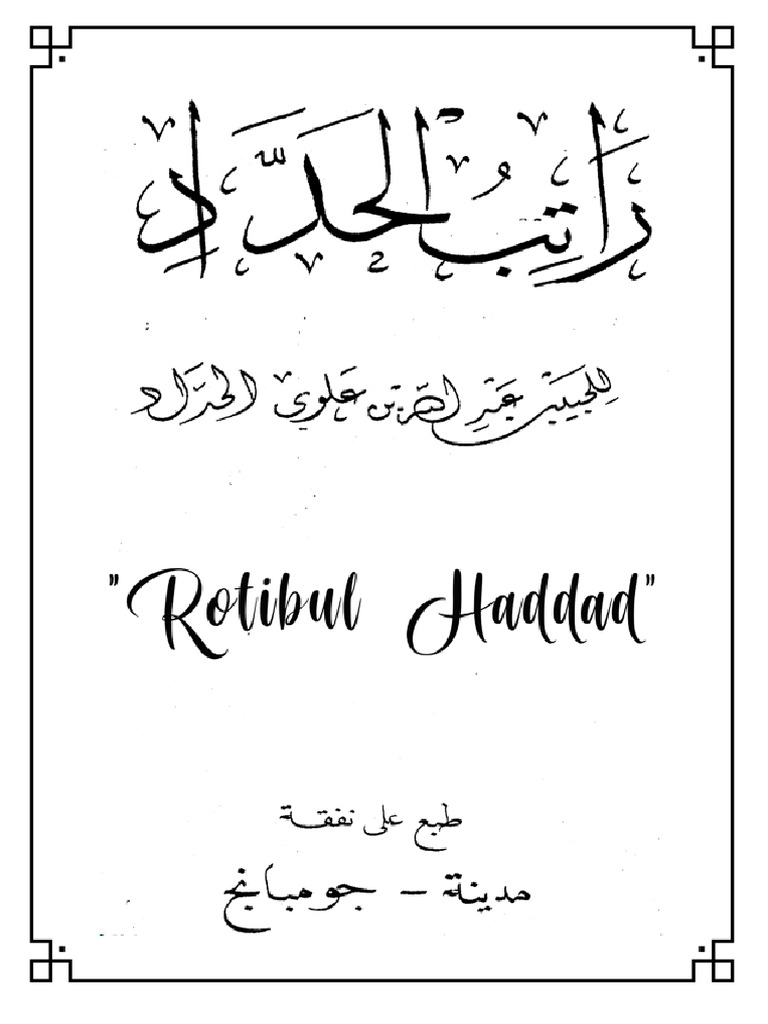 رَاتِبُ الْحَدَّادِ
لِلْحَبِيْبِ عَبْدِ اللهِ بْنِ عَلَوِيِّ الْحَدَّادِ
"Rotibul Haddad"
طبع على نفقة
مدينة - جومبانج